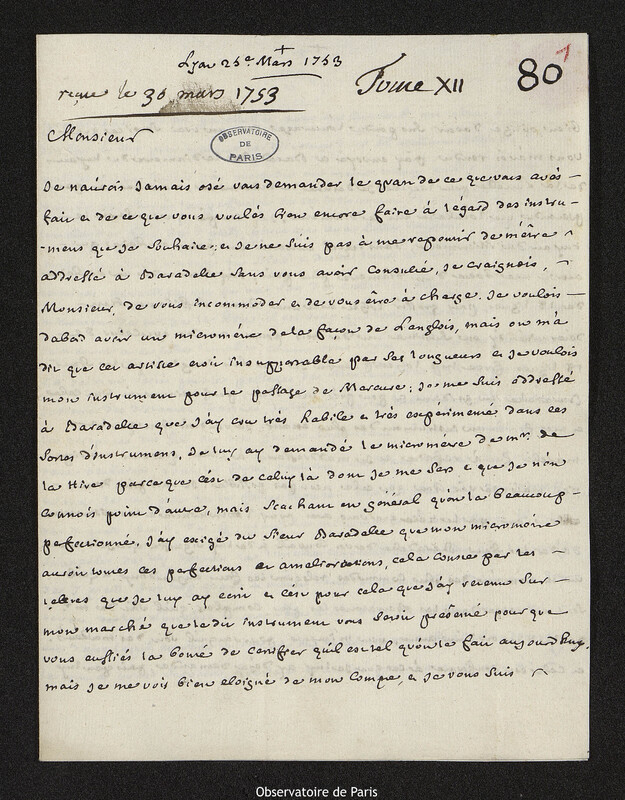 Lyon 25e Mars 1753
reçue le 30 mars 1753
Tome XII
80
7
Monsieur
OBSERVATOIRE
DE
PARIS
Je n'aurois Jamais osé vous demander le quart de ce que vous avés
fait et de ce que vous voulés bien encore faire à l'égard des instru-
-mens que Je souhaite; et Je ne suis pas à me repentir de m'être
addressé à Baradelle sans vous avoir consulté, Je craignois,
Monsieur, de vous incommoder et de vous être à charge. Je voulois
dabort avoir un micromêtre de la façon de Langlois, mais on m'a
dit que cet artiste etoit insupportable par ses longueurs et Je voulois
mon instrument pour le passage de Mercure; Je me suis addressé
à Baradelle que J'ay cru très habile et très expérimenté dans ces
sortes d'instrumens, Je luy ay demandé le micromêtre de mr. de
la Hire parceque c'est de celuy là dont Je me sers et que Je n'en
connois point d'autre, mais scachant en général qu'on l'a beaucoup
perfectionné, J'ay exigé du Sieur Baradelle que mon micromêtre
auroit toutes ces perfections et améliorations, cela conste par les
lettres que Je luy ay ecrit et c'est pour cela que J'ay retenu sur
mon marché que ledit instrument vous seroit présenté pour que
vous eussiés la bonté de certifier qu'il est tel qu'on le fait aujourd'huy.
mais Je me vois bien eloigné de mon compte, et Je vous suis
Observatoire de Paris